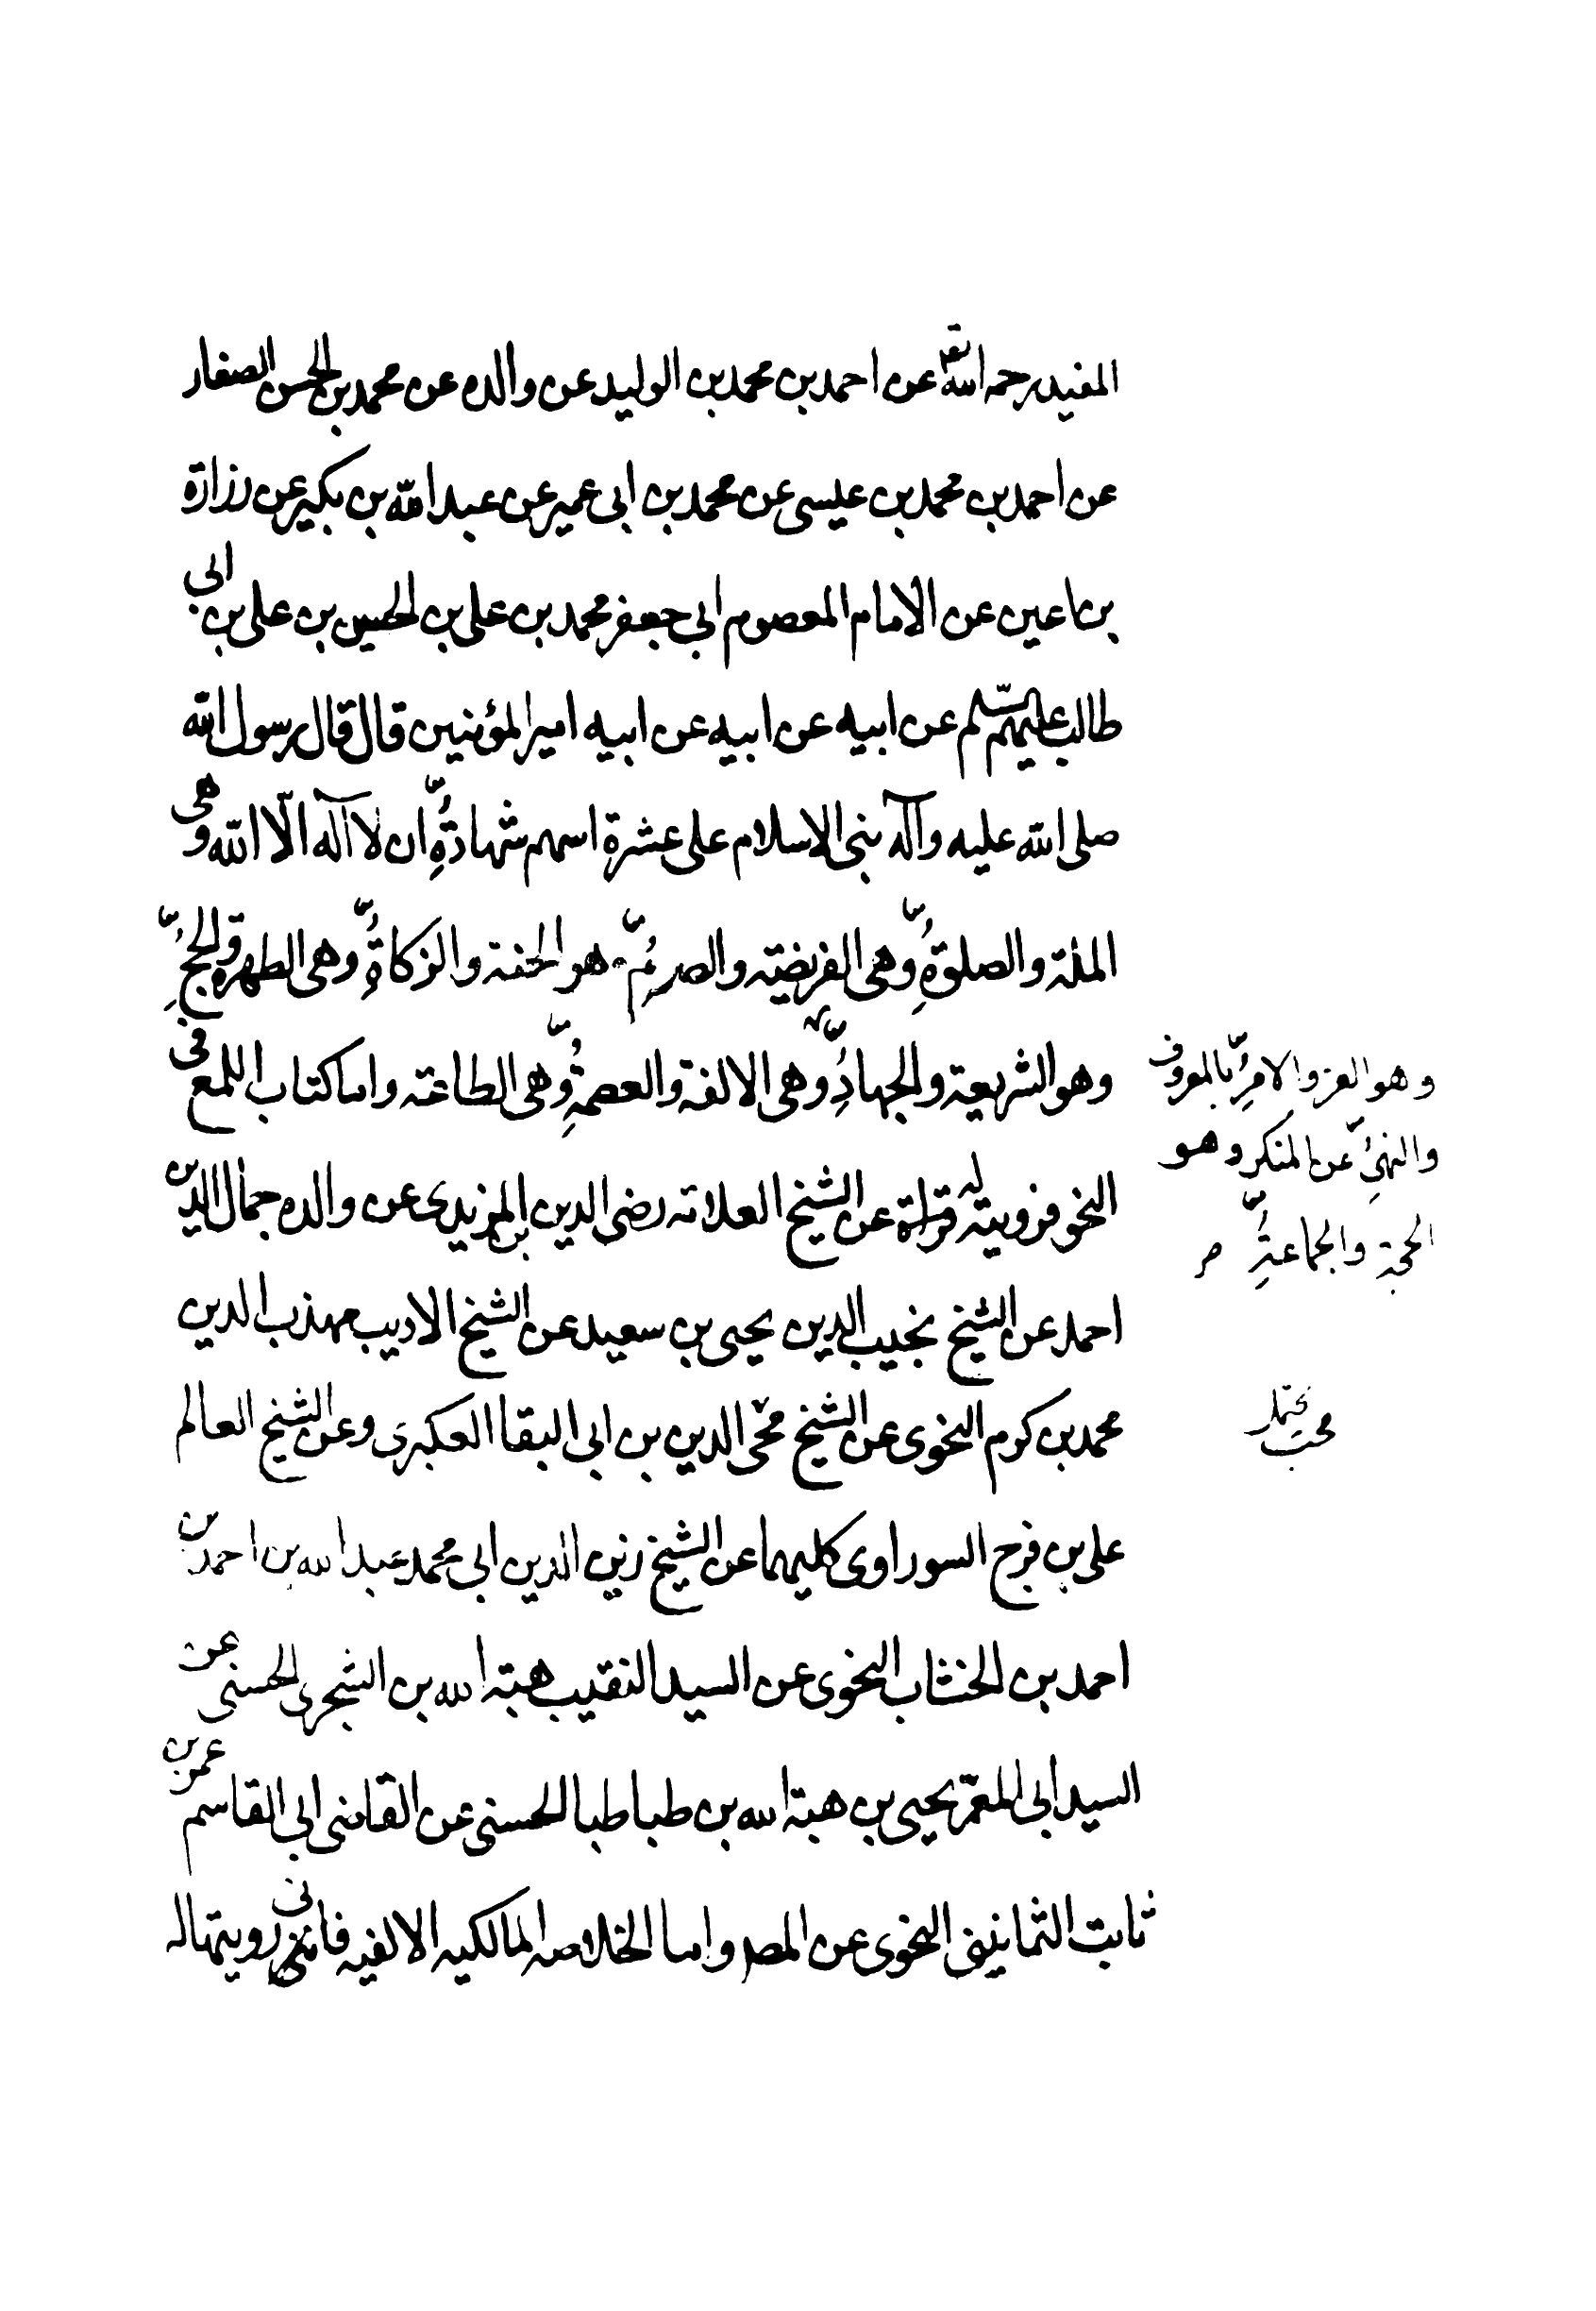 المفيد رحمه الله تعا عن احمد بن محمد بن الوليد عن والده عن محمد بن الحسن الصفار
عن احمد بن محمد بن عيسى عن محمد بن ابى عمير عن عبد الله بن بكير عن زرارة
بن اعين عن الامام المعصوم ابى جعفر محمد بن على بن الحسين بن على بن ابى
طالب عليهم السلم عن ابيه عن ابيه عن ابيه امير المؤمنين قال قال رسول الله
صلى الله عليه وآله بنى الاسلام على عشرة اسهم شهادة ان لا اله الا الله وهى
الملة والصلوة وهى الفريضته والصوم وهو الجنة والزكاة وهى الطهرة والحج
وهو الشريعة والجهاد وهى الالفة والعصمة وهى الطاعته واما كتاب اللمع فى
وهو العز والامر بالمعروف
والنهى عن المنكر وهو
الحجة والجماعة
النحو فرويته له قراءة عن الشيخ العلامه رضى الدين بن المزيدى عن والده جمال الدين
احمد عن الشيخ نجيب الدين يحيى بن سعيد عن الشيخ الاديب مهذب الدين
محمد بن كرم النحوى عن الشيخ محى الدين بن ابى البقا العكبرى وعن الشيخ العالم
محب
على بن فرج السوراوى كليهما عن الشيخ زين الدين ابى محمد عبد الله بن احمد بن
احمد بن الخشاب النحوى عن السيد النقيب هبة الله بن الشجرى الحسنى عن
السيد ابى المعمر يحيى بن هبة الله بن طباطبا الحسنى عن القاضى ابى القاسم عمر بن
ثابت الثمانينى النحوى عن المصر واما الخلاصه المالكيه الالفيه فانى رويتها له